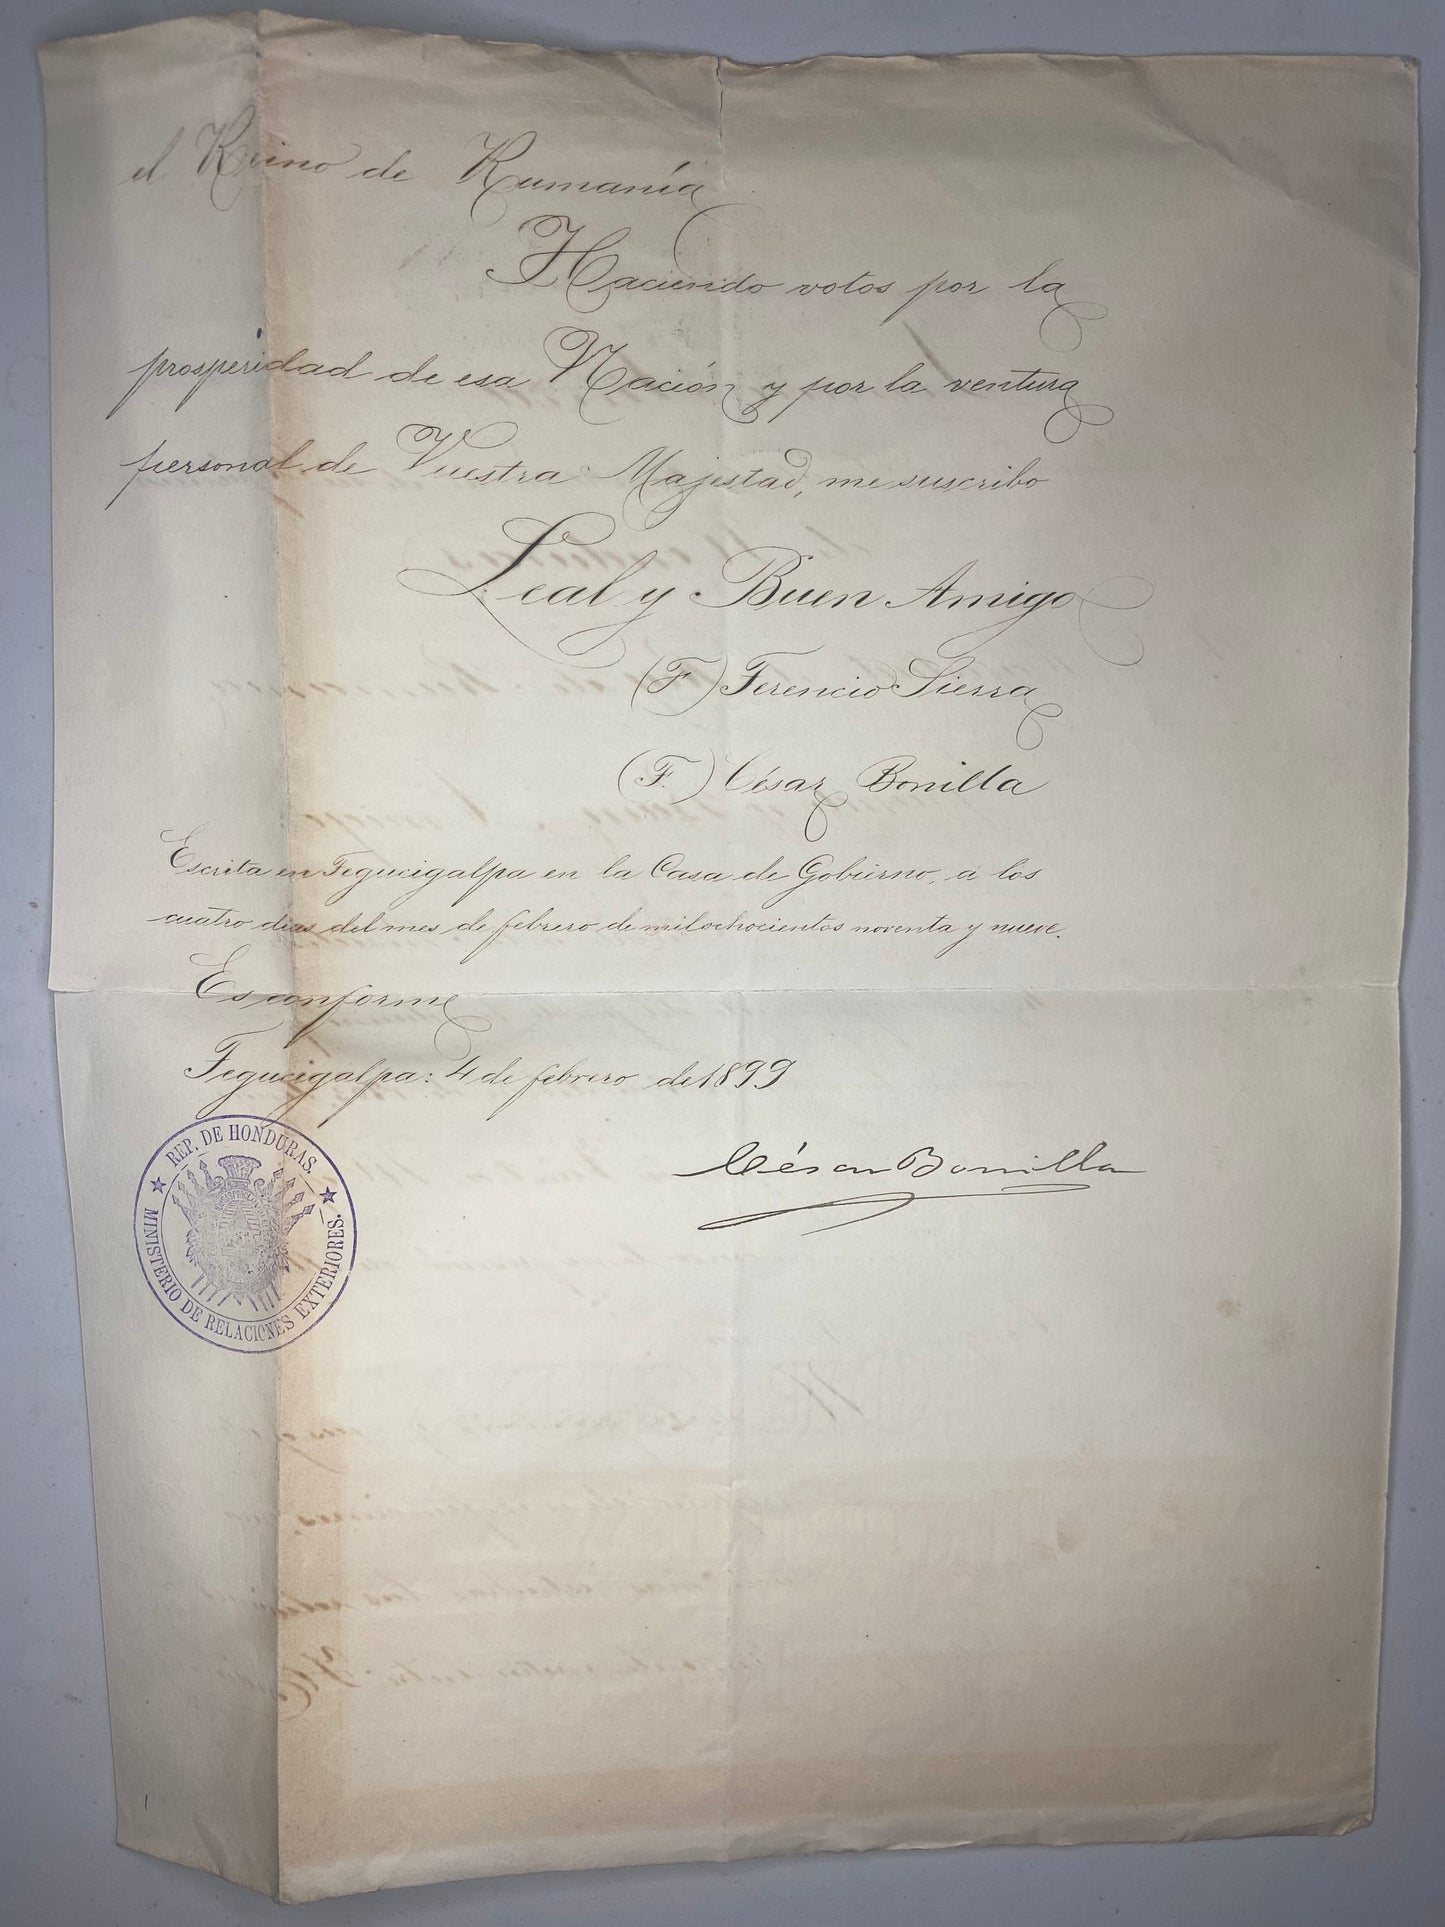 el Reino de Rumanía
Haciendo votos por la
prosperidad de esa Nación y por la ventura
personal de Vuestra Majestad, me suscribo
Leal y Buen Amigo
(F) Terencio Sierra
(F.) César Bonilla
Escrita en Tegucigalpa en la Casa de Gobierno, á los
cuatro dias del mes de febrero de mil ochocientos noventa y nueve.
Es conforme
Tegucigalpa: 4 de febrero de 1899
César Bonilla
REP. DE HONDURAS.
MINISTERIO DE RELACIONES EXTERIORES.